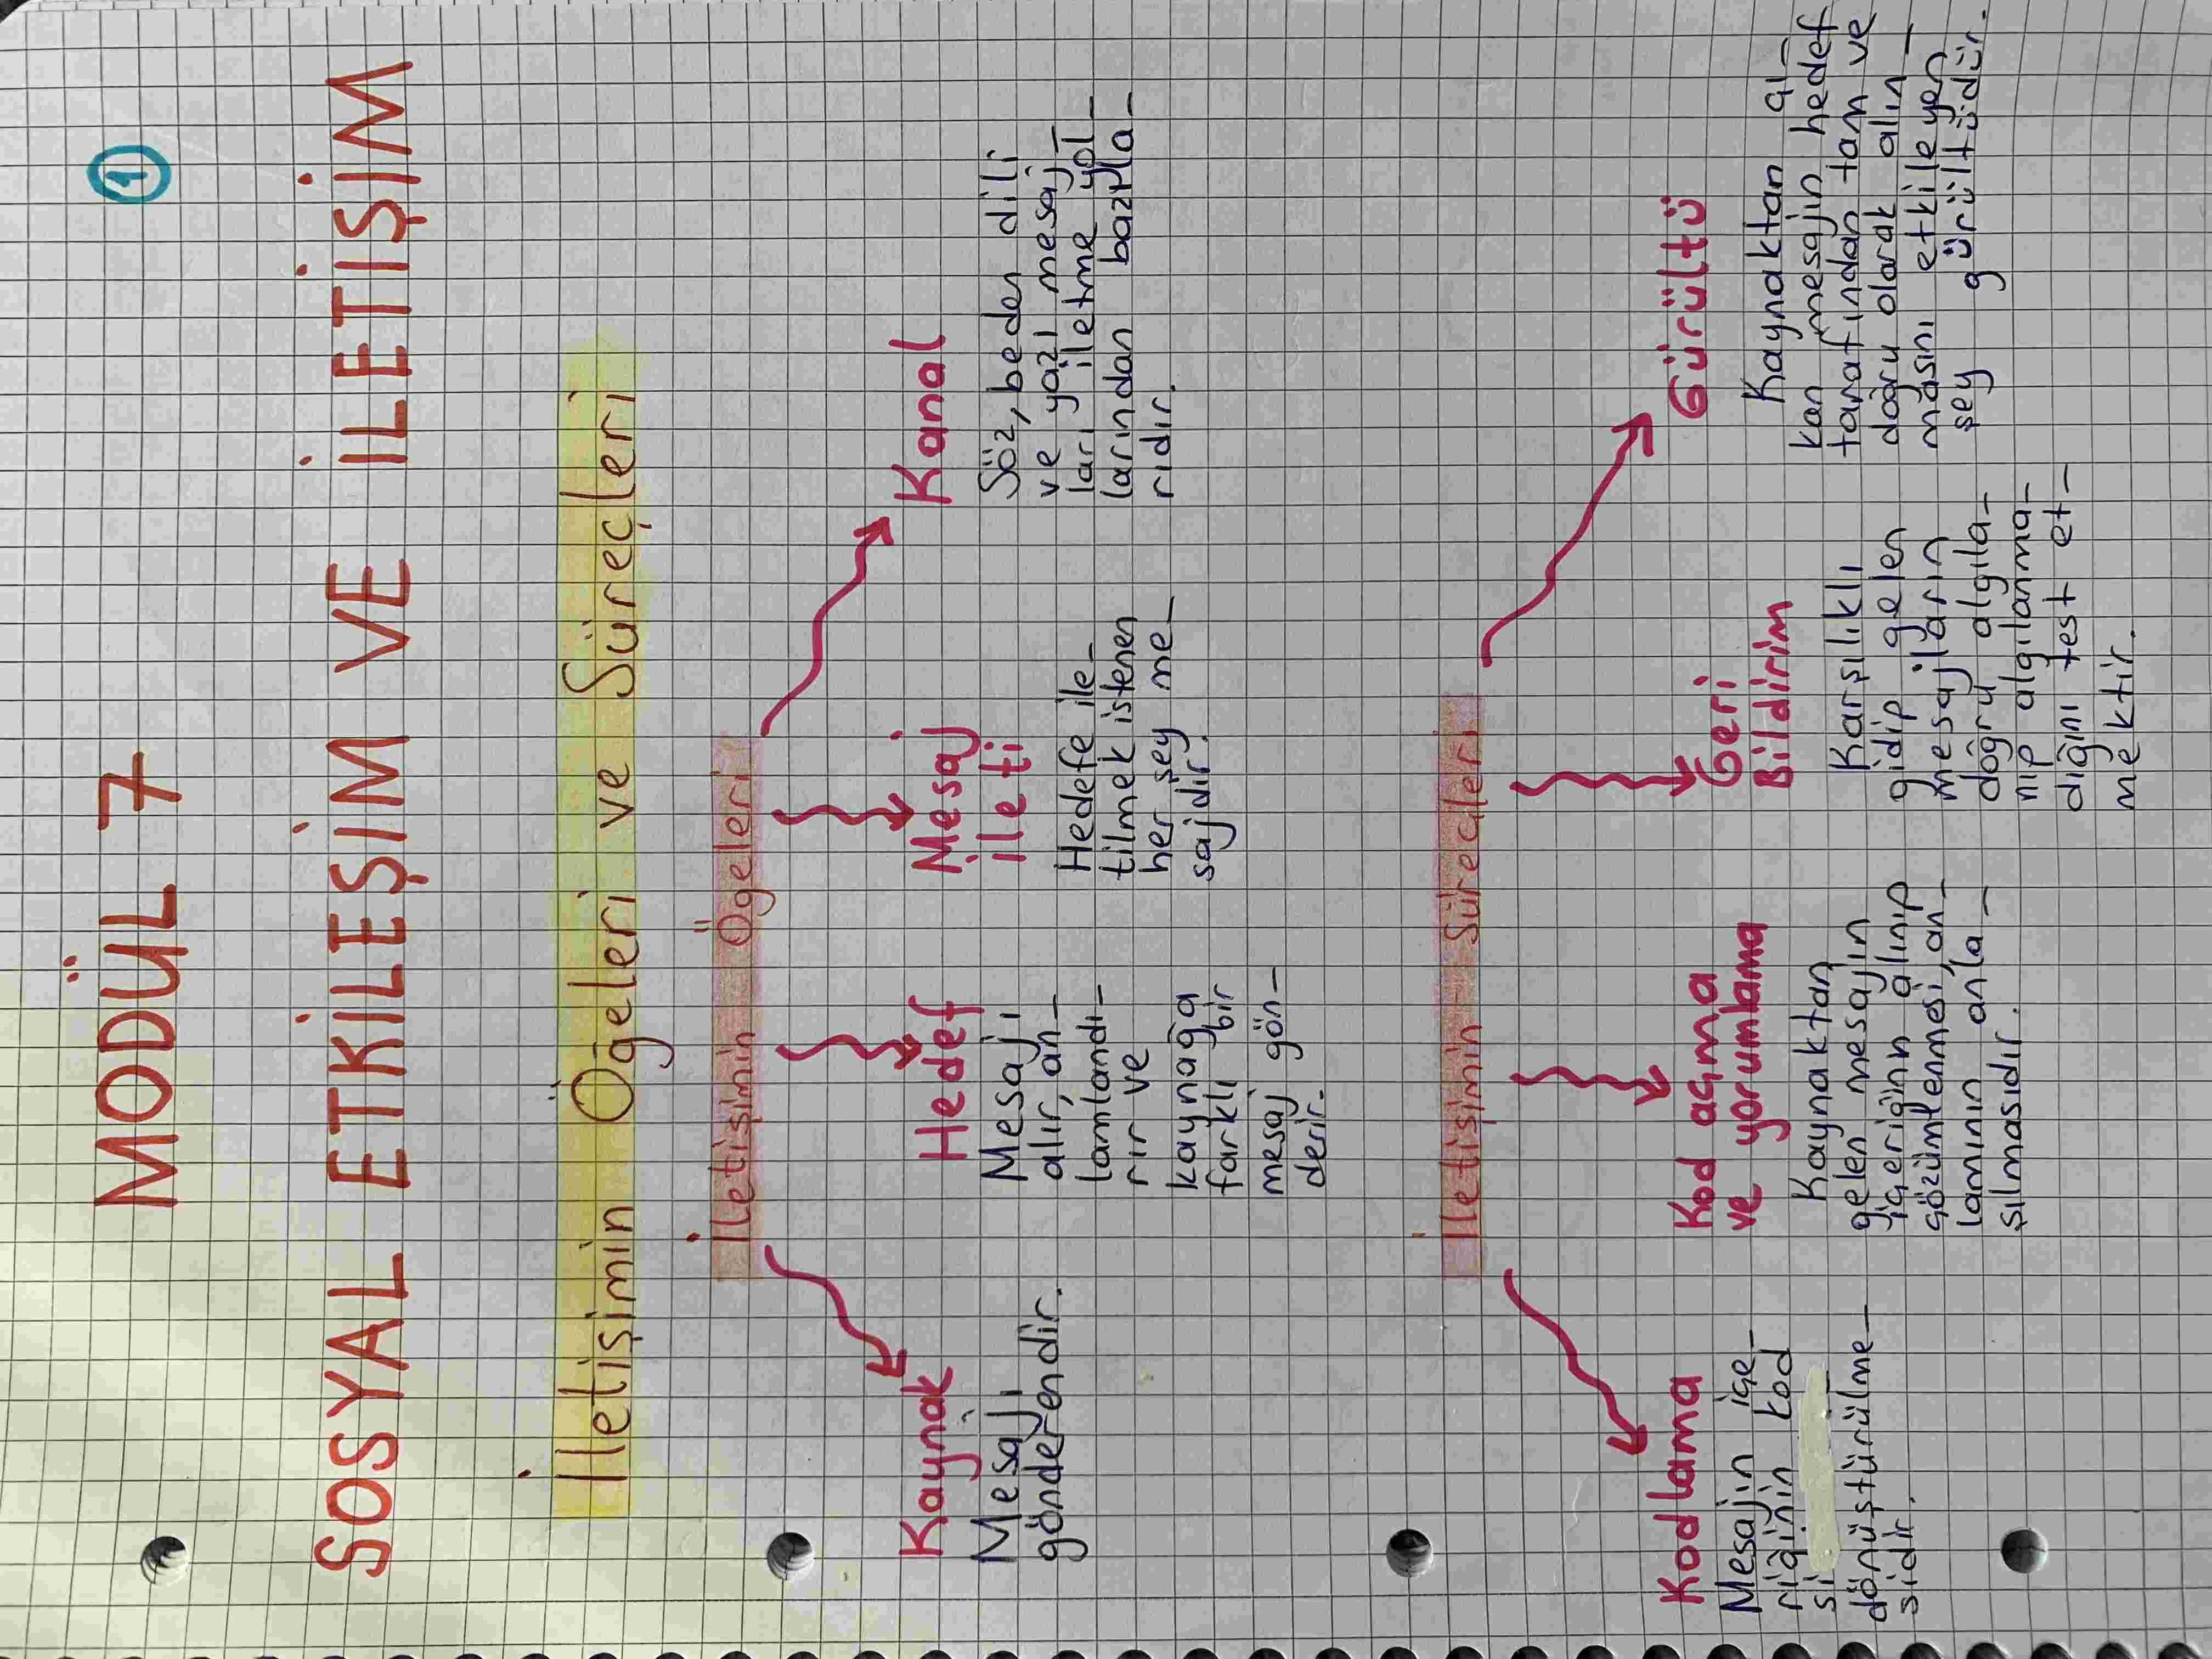 ①
MODÜL 7
SOSYAL ETKİLEŞİM VE İLETİŞİM
İletişimin Ögeleri ve Süreçleri
İletişimin Ögeleri
Kaynak
Mesajı
gönderendir.
Hedef
Mesajı
alır, an-
lamlandı-
rır ve
kaynağa
farklı bir
mesaj gön-
derir.
Mesaj
ileti
Hedefe ile-
tilmek istenen
her şey me-
sajdır.
Kanal
Söz, beden dili
ve yazı mesaj-
ları iletme yol-
larından bazıla-
rıdır.
İletişimin Süreçleri
Kodlama
Mesajın içe-
riğinin kod
si
dönüştürülme-
sidir.
Kod açma
ve yorumlama
Kaynaktan
gelen mesajın
içeriğinin alınıp
çözümlenmesi, an-
lamının anla-
şılmasıdır.
Geri
Bildirim
Karşılıklı
gidip gelen
mesajların
doğru algıla-
nıp algılanma-
dığını test et-
mektir.
Gürültü
Kaynaktan çı-
kan mesajın hedef
tarafından tam ve
doğru olarak alın-
masını etkileyen
şey gürültüdür.